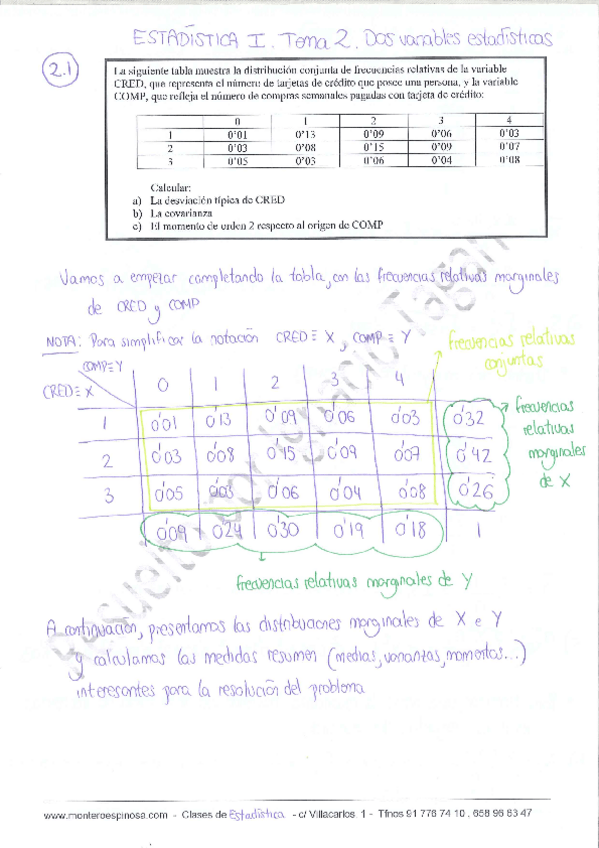 ESTADÍSTICA I. Tema 2. Dos variables estadísticas
2.1
La siguiente tabla muestra la distribución conjunta de frecuencias relativas de la variable
CRED, que representa el número de tarjetas de crédito que posee una persona, y la variable
COMP, que refleja el número de compras semanales pagadas con tarjeta de crédito:
0 1 2 3 4
1 0'01 0'13 0'09 0'06 0'03
2 0'03 0'08 0'15 0'09 0'07
3 0'05 0'03 0'06 0'04 0'08
Calcular:
a) La desviación típica de CRED
b) La covarianza
c) El momento de orden 2 respecto al origen de COMP
Vamos a empezar completando la tabla, con las frecuencias relativas marginales
de CRED y COMP
NOTA: Para simplificar la notación CRED ≡ X, COMP ≡ Y
frecuencias relativas
conjuntas
COMP≡Y
CRED≡X
0 1 2 3 4
1 0'01 0'13 0'09 0'06 0'03 0'32
2 0'03 0'08 0'15 0'09 0'07 0'42
3 0'05 0'03 0'06 0'04 0'08 0'26
0'09 0'24 0'30 0'19 0'18 1
frecuencias
relativas
marginales
de X
frecuencias relativas marginales de Y
A continuación, presentamos las distribuciones marginales de X e Y
y calculamos las medidas resumen (medias, varianzas, momentos...)
interesantes para la resolución del problema
www.monteroespinosa.com - Clases de Estadística - c/ Villacarlos 1 - Tfnos 91 776 74 10 , 658 96 83 47